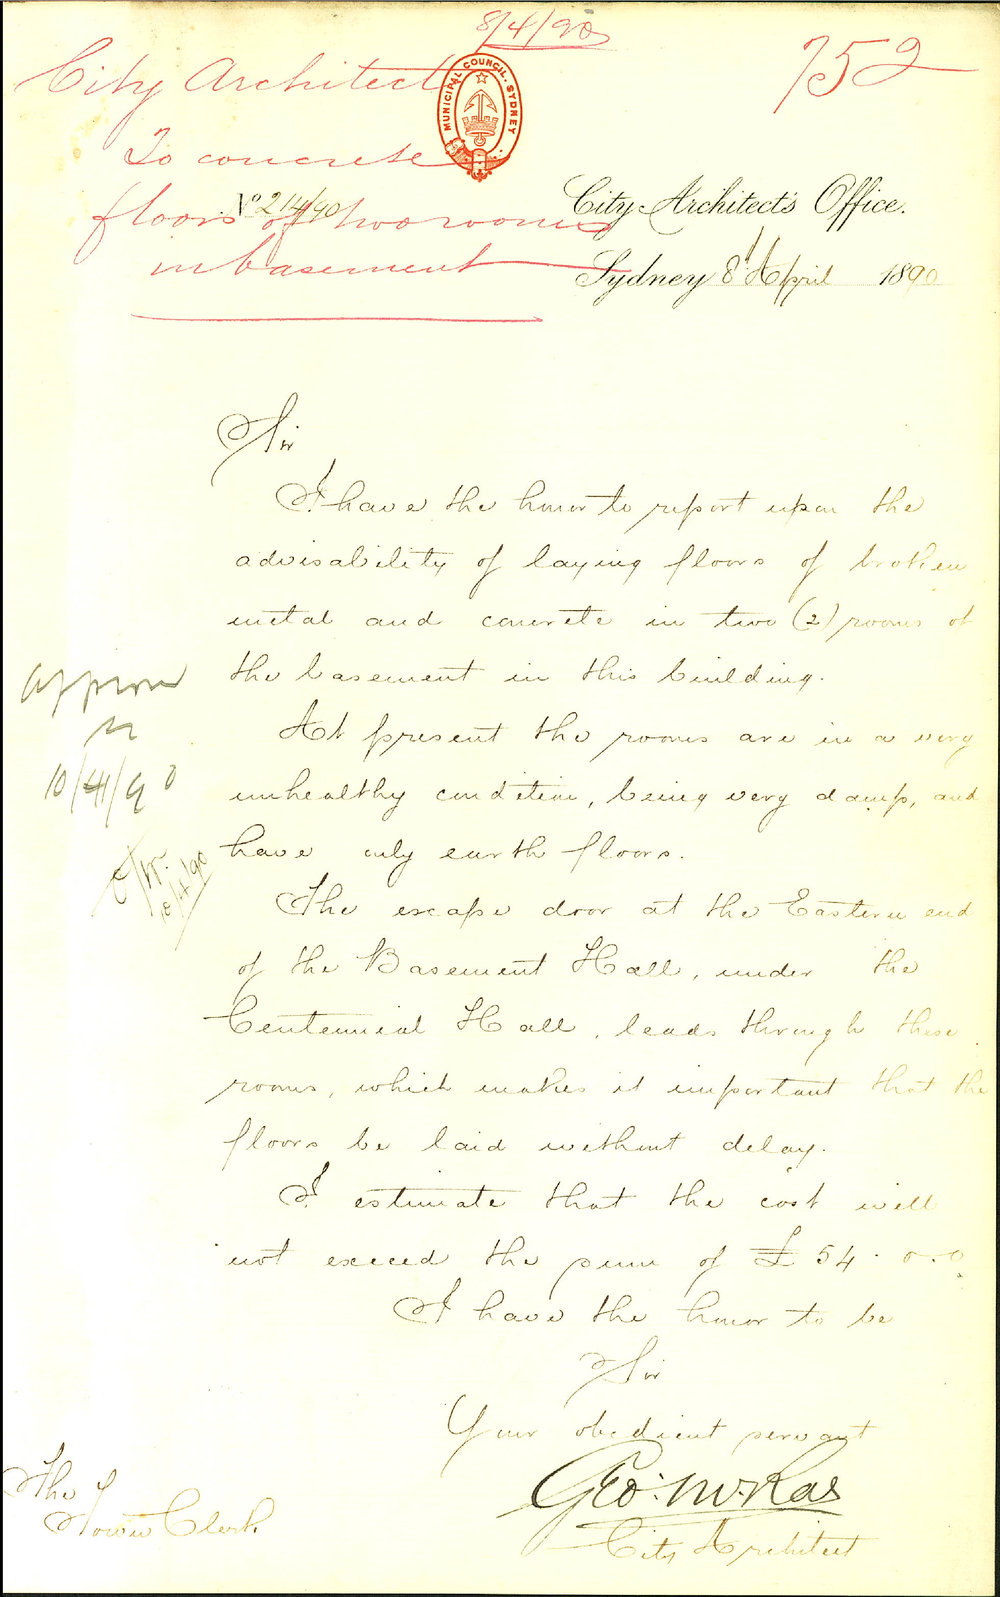 8/4/90
City Architect
752
MUNICIPAL COUNCIL. SYDNEY
To concrete
floors of two rooms
in basement
No 214/90
City Architect's Office.
Sydney 8th April 1890
Sir
I have the honor to report upon the
advisability of laying floors of broken
metal and concrete in two (2) rooms of
the basement in this building.
At present the rooms are in a very
unhealthy condition, being very damp, and
have only earth floors.
The escape door at the Eastern end
of the Basement Hall, under the
Centennial Hall, leads through these
rooms, which makes it important that the
floors be laid without delay.
I estimate that the cost will
not exceed the sum of £54.0.0.
I have the honor to be
Sir
Your obedient servant
Geo. McRae
City Architect
The
Town Clerk
Approved
10/4/90
10/4/90